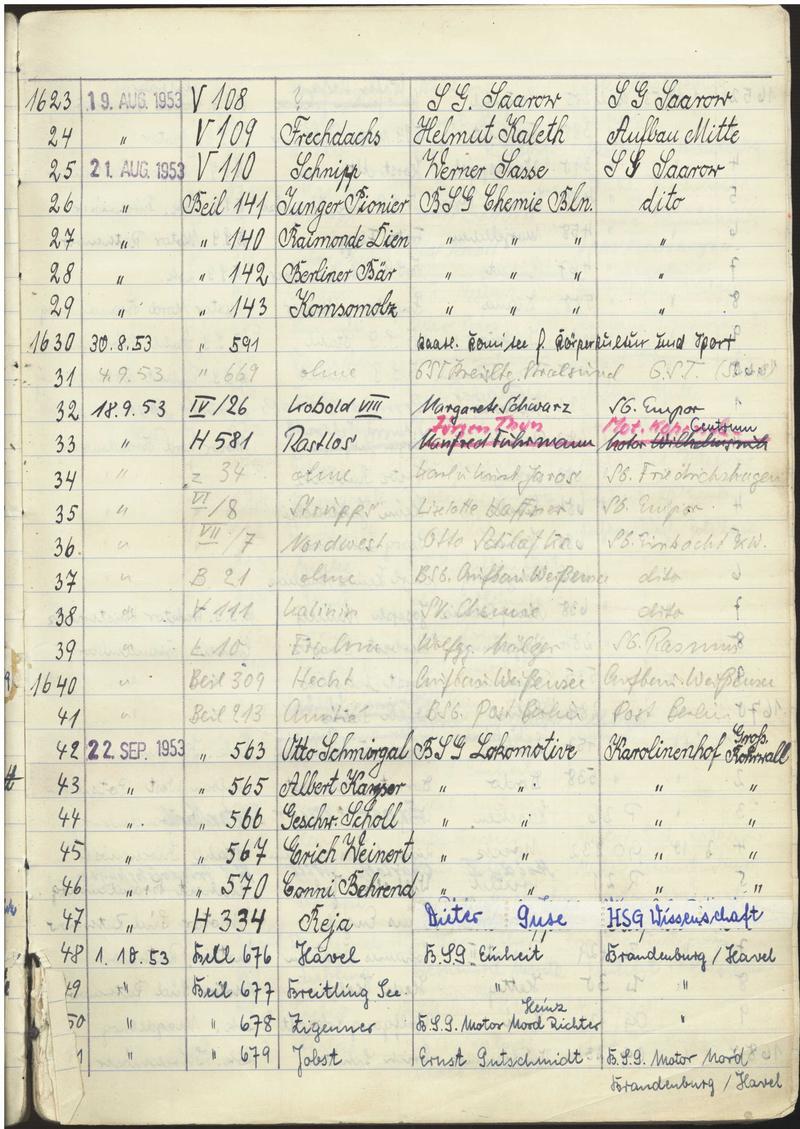 1623 19. AUG. 1953 V 108 ? S G. Saarow S G Saarow
24 " V 109 Frechdachs Helmut Kaleth Aufbau Mitte
25 21. AUG 1953 V 110 Schnipp Werner Sasse S G Saarow
26 " Beil 141 Junger Pionier BSG Chemie Bln. dito
27 " " 140 Raimonde Dien " " " "
28 " " 142 Berliner Bär " " " "
29 " " 143 Komsomolz " " " "
1630 30.8.53 " 591 Staatl. Komitee f. Körperkultur und Sport
31 4.9.53 " 669 ohne GST Kreisltg. Stralsund G.S.T.
32 18.9.53 IV/26 Kobold VIII Margarete Schwarz SG. Empor
Jürgen Thun Mot. Zentrum
33 " H 581 Rastlos Manfred Fuhrmann Motor Wilhelmsruh
34 " Z 34 ohne Jaros SG. Friedrichshagen
35 " VI/8 Struppi Liselotte SG. Empor
36 " VII/7 Nordwest Otto SG. KW.
37 " B 21 ohne BSG. Aufbau Weißensee dito
38 " V 111 Kalinin SV. Chemie dito
39 " E 10 Wolfg. SG.
1640 " Beil 309 Hecht Aufbau Weißensee Aufbau Weißensee
41 " Beil 213 BSG. Post Berlin Post Berlin
42 22. SEP. 1953 " 563 Otto Schmirgal BSG Lokomotive Karolinenhof Groß. Rohrwall
43 " " 565 Albert Kayser " " " "
44 " " 566 Geschw. Scholl " " " "
45 " " 567 Erich Weinert " " " "
46 " " 570 Conni Behrend " " " "
47 " H 334 Reja Dieter Guse HSG Wissenschaft
48 1.10.53 Beil 676 Havel B.S.G. Einheit Brandenburg / Havel
49 " Beil 677 Breitling See. " "
Heinz
50 " " 678 Zigeuner B.S.G. Motor Nord Richter "
1 " " 679 Jobst Ernst Gutschmidt B.S.G. Motor Nord
Brandenburg / Havel